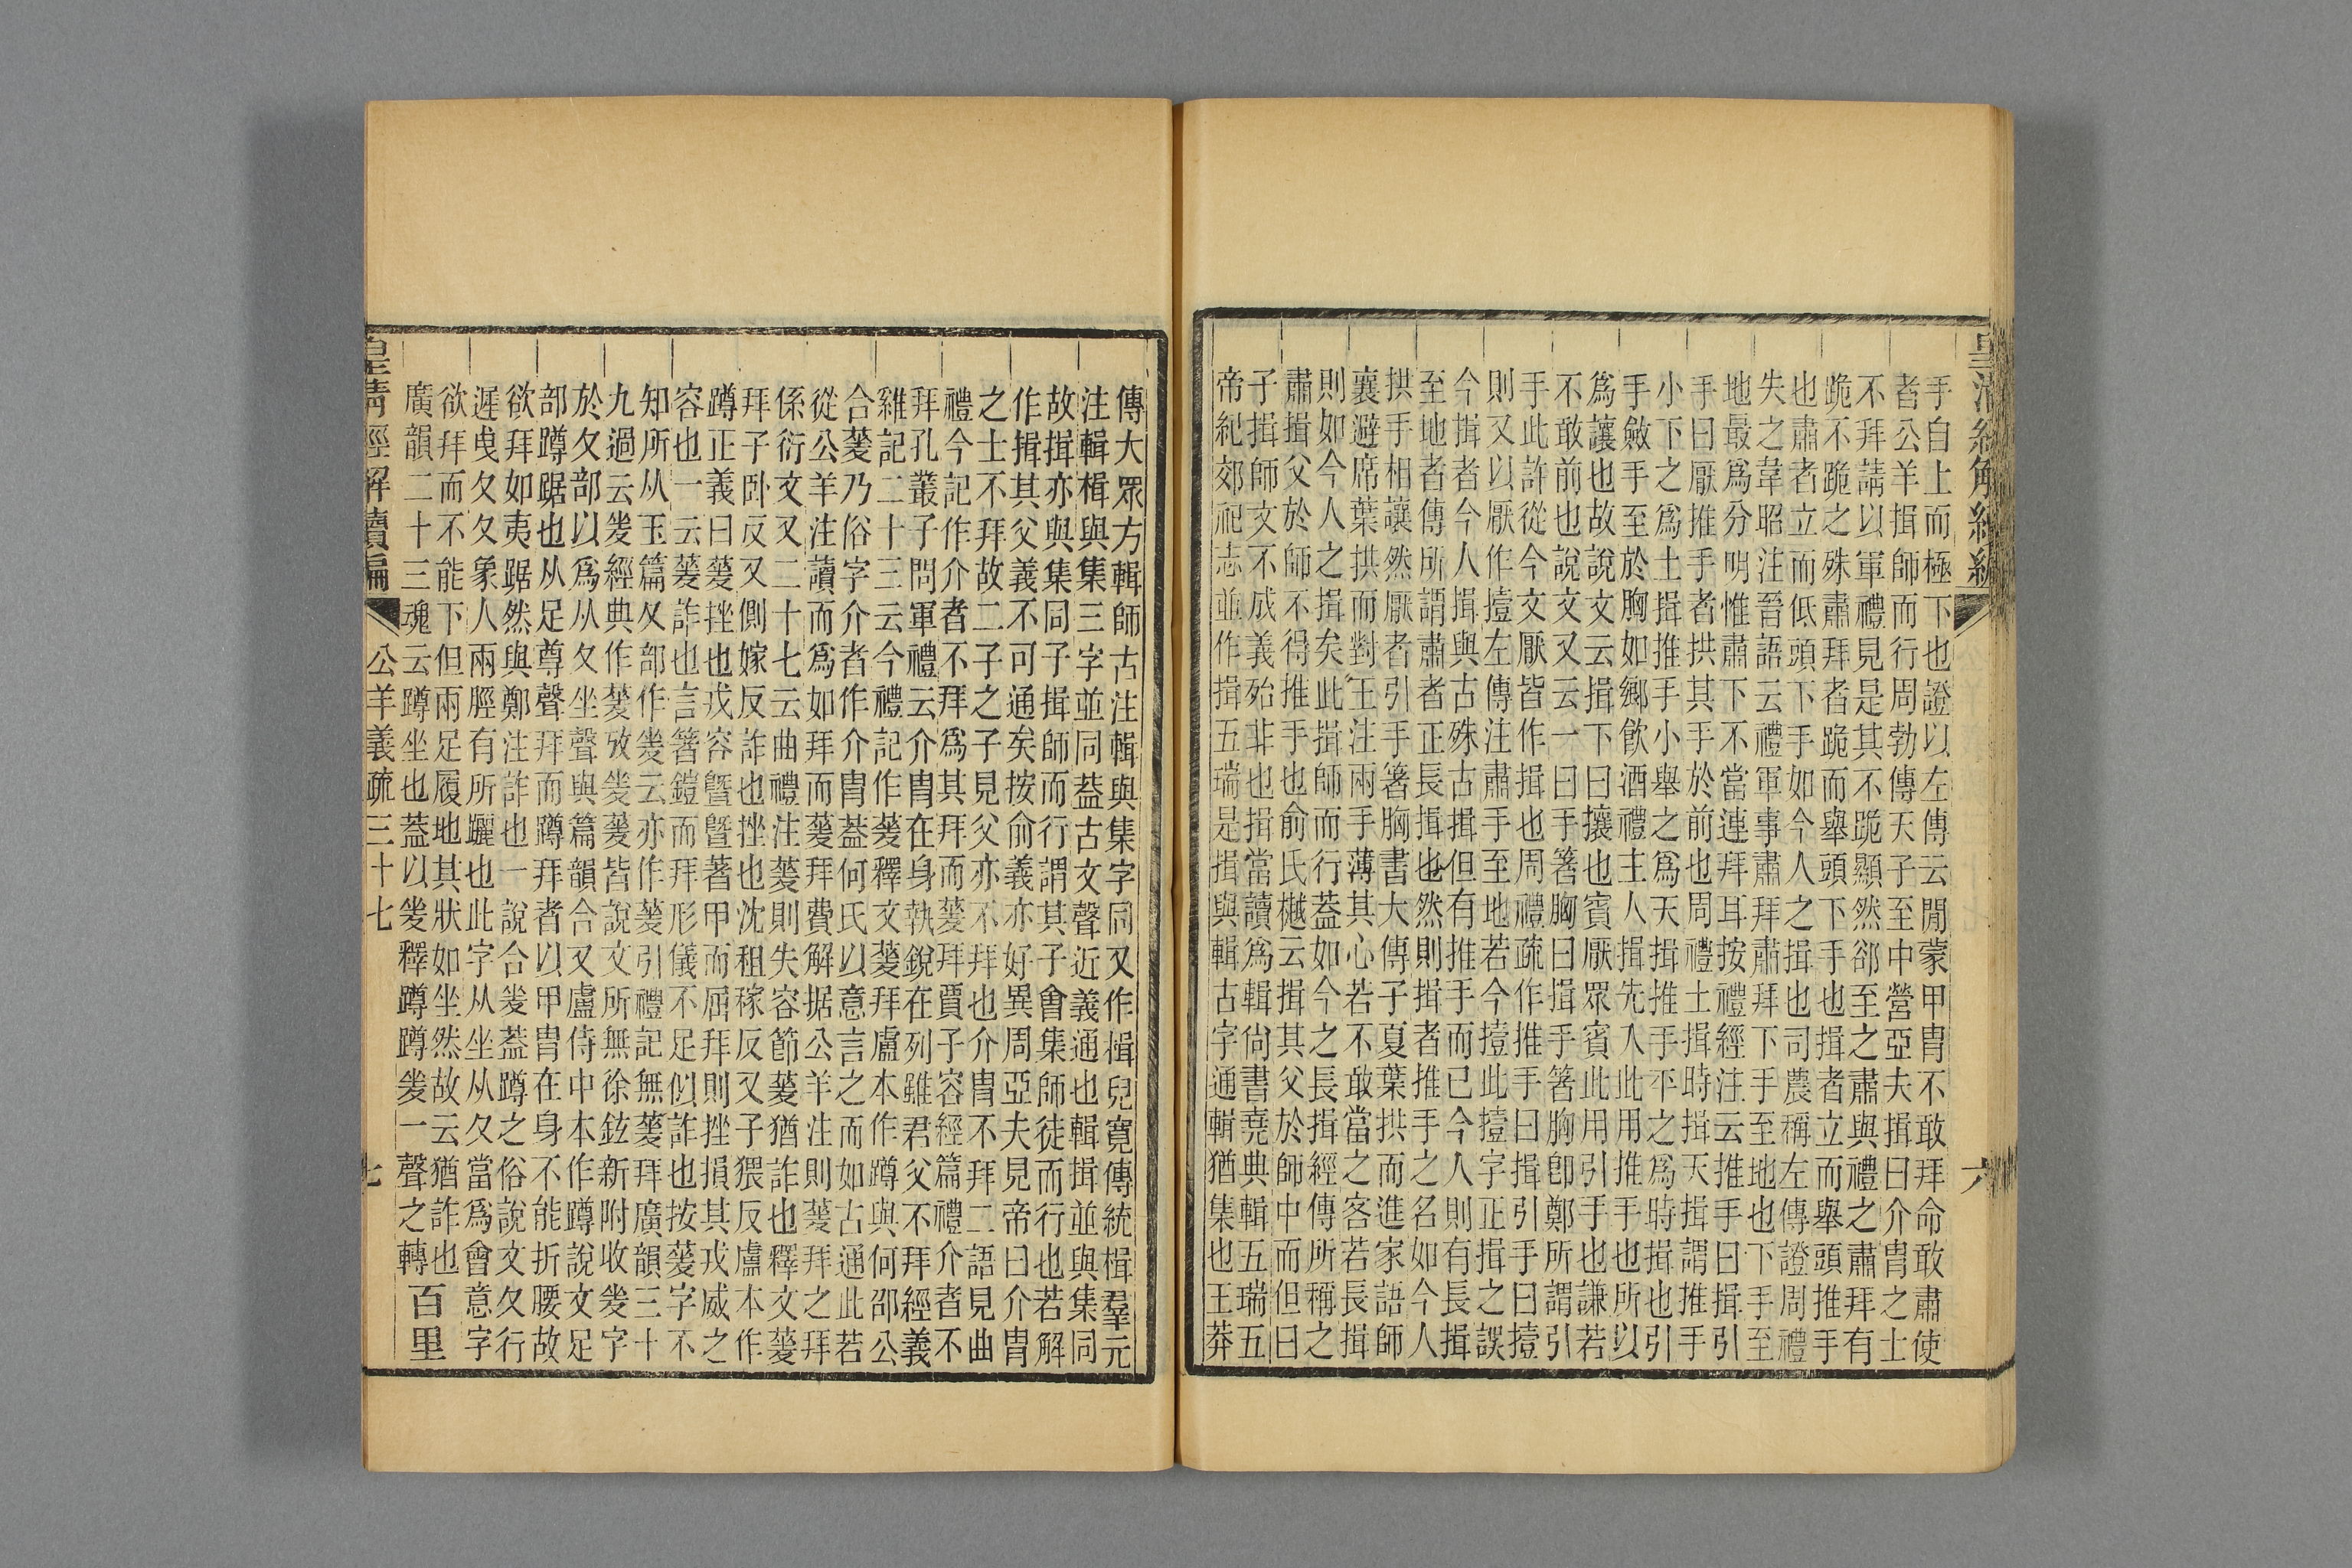 皇清經解續編
六
手自上而極下也證以左傳云閒蒙甲冑不敢拜命敢肅使
者公羊揖師而行周勃傳天子至中營亞夫揖曰介冑之士
不拜請以軍禮見是其不跪顯然郤至之肅與禮之肅拜有
跪不跪之殊肅拜者跪而舉頭下手也揖者立而舉頭推手
也肅者立而低頭下手如今人之揖也司農稱左傳證周禮
失之韋昭注晉語云禮軍事肅拜肅拜下手至地也下手至
地最爲分明惟肅下不當連拜耳按禮經注云推手曰揖引
手曰厭推手者拱其手於前也周禮土揖時揖天揖謂推手
小下之爲土揖推手小舉之爲天揖推手平之爲時揖也引
手斂手至於胸如鄉飲酒禮主人揖先入此用推手也所以
爲讓也故說文云揖下曰攘也賓厭眾賓此用引手也謙若
不敢前也說文又云一曰手箸胸曰揖手箸胸卽鄭所謂引
手此許從今文厭皆作揖也周禮疏作推手曰揖引手曰擡
則又以厭作擡左傳注肅手至地若今擡此擡字正揖之誤
今揖者今人揖與古殊古揖但有推手而已今人則有長揖
至地者傳所謂肅者正長揖也然則揖者推手之名如今人
拱手相讓然厭者引手箸胸書大傳子夏葉拱而進家語師
襄避席葉拱而對王注兩手薄其心若不敢當之客若長揖
則如今人之揖矣此揖師而行蓋如今之長揖經傳所稱之
肅揖父於師不得推手也俞氏樾云揖其父於師中而但曰
子揖師文不成義殆非也揖當讀爲輯尙書堯典輯五瑞五
帝紀郊祀志並作揖五瑞是揖與輯古字通輯猶集也王莽
傳大眾方輯師古注輯與集字同又作楫兒寬傳統楫羣元
注輯楫與集三字並同蓋古文聲近義通也輯揖並與集同
故揖亦與集同子揖師而行謂其子會集師徒而行也若解
作揖其父義不可通矣按俞義亦好異周亞夫見帝曰介冑
之士不拜故二子之子見父亦不拜也介冑不拜二語見曲
禮今記作介者不拜爲其拜而蓌拜賈子容經篇禮介者不
拜孔叢子問軍禮云介冑在身執銳在列雖君父不拜經義
雜記二十三云今禮記作蓌釋文蓌拜盧本作蹲與何邵公
合蓌乃俗字介者作介冑蓋何氏以意言之而如古通此若
從公羊注讀而爲如拜而蓌拜費解据公羊注則蓌拜之拜
係衍文又二十七云曲禮注蓌則失容節蓌猶詐也釋文蓌
拜子卧反又側嫁反詐也挫也沈租稼反又子猥反盧本作
蹲正義曰蓌挫也戎容曁曁著甲而屈拜則挫損其戎威之
容也一云蓌詐也言箸鎧而拜形儀不足似詐也按蓌字不
知所从玉篇夊部作夎云亦作蓌引禮記無蓌拜廣韻三十
九過云夎經典作蓌攷夎蓌皆說文所無徐鉉新附收夎字
於夊部以爲从夊坐聲與篇韻合又盧侍中本作蹲說文足
部蹲踞也从足尊聲拜而蹲拜者以甲冑在身不能折腰故
欲拜如夷踞然與鄭注詐也一說合夎蓋蹲之俗說文夊行
遲曳夊夊象人兩脛有所躧也此字从坐从夊當爲會意字
欲拜而不能下但兩足履地其狀如坐然故云猶詐也
廣韻二十三魂云蹲坐也蓋以夎釋蹲蹲夎一聲之轉
百里
皇清經解續編
公羊義疏三十七
七